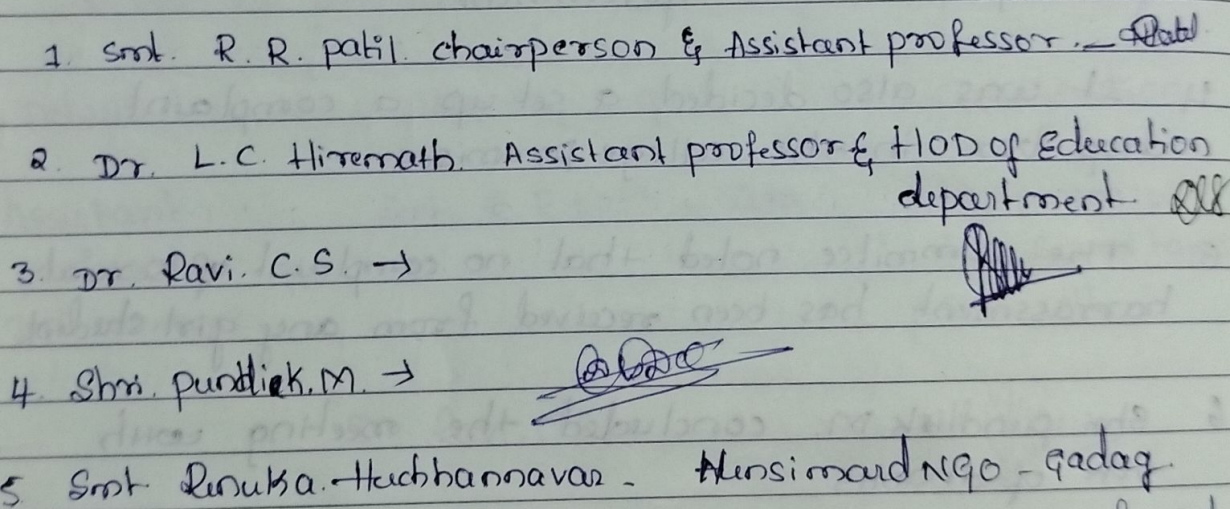 1. Smt. R. R. patil. chairperson & Assistant professor. -
2. Dr. L.C. Hiremath. Assistant professor & HOD of Education
department
3. Dr. Ravi. C.S. →
4 Shri. pundlik. M. →
5 Smt Renuka. Huchhannavar - NGO - Gadag.